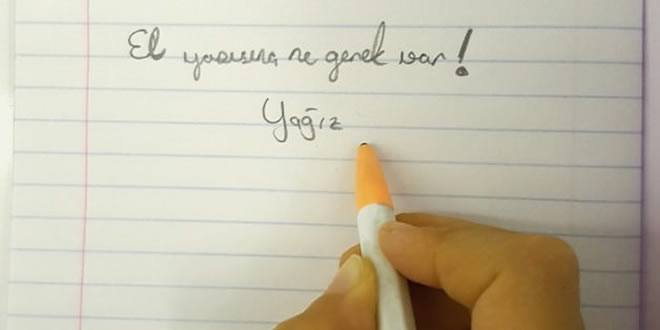 El yazısına ne gerek var!
Yağız